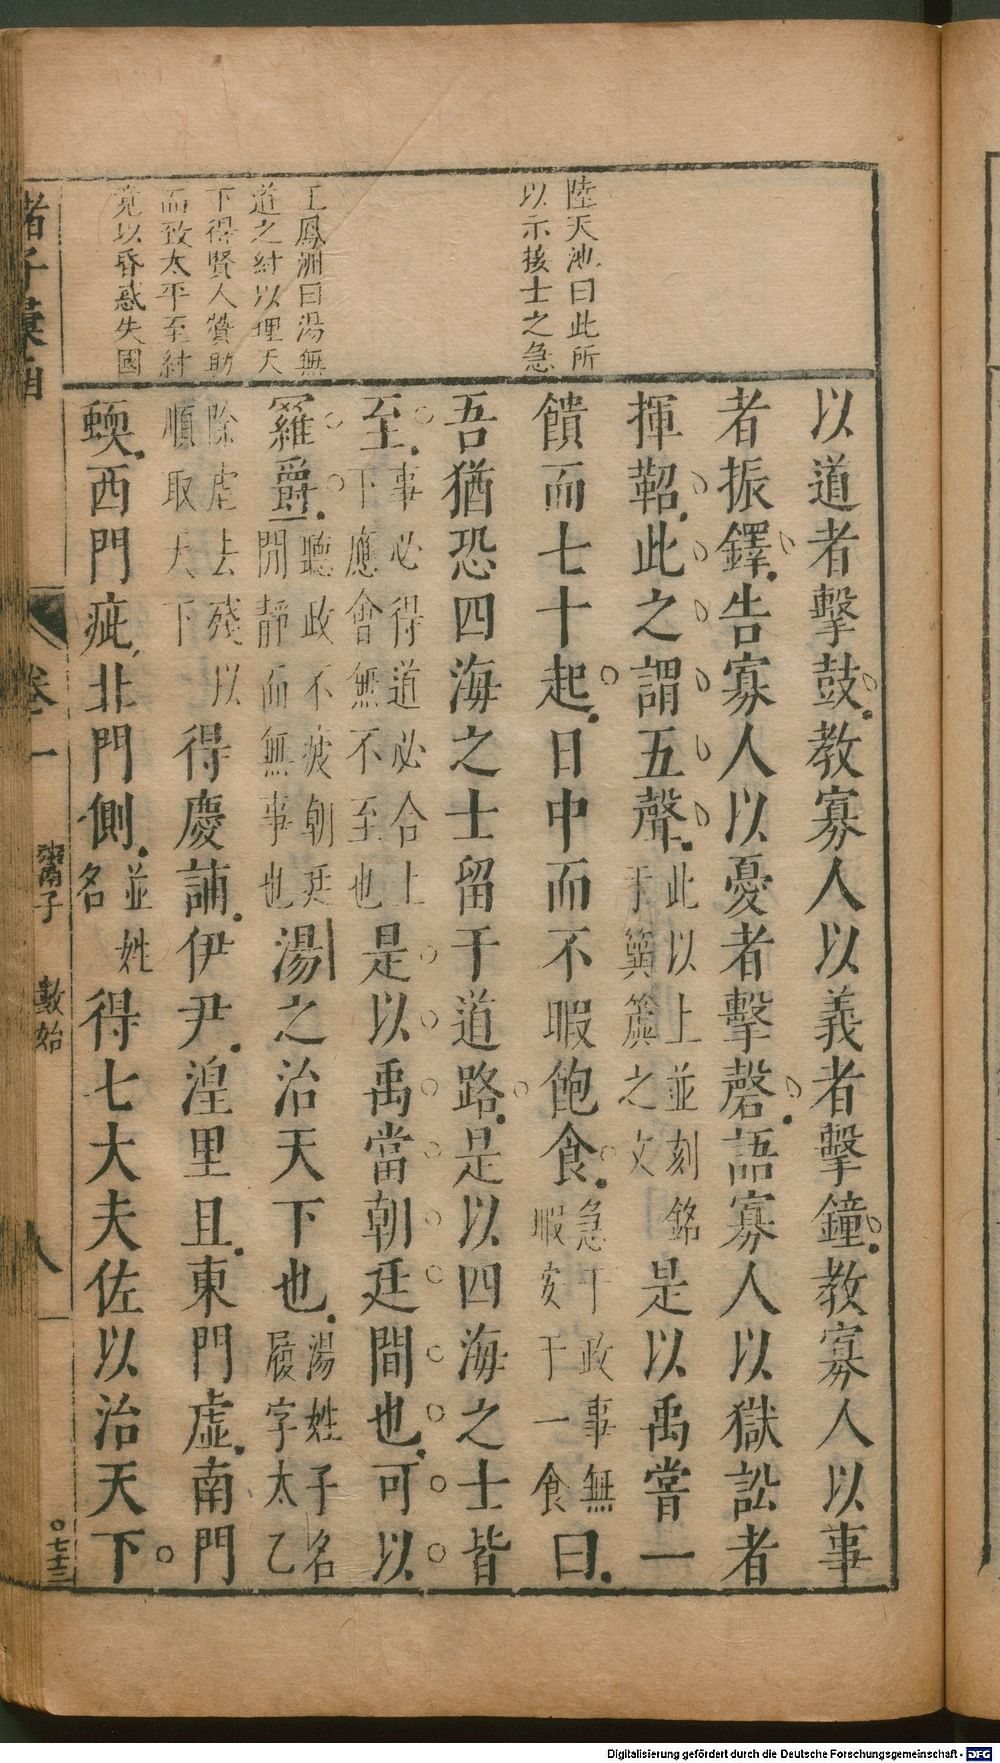 陸天池曰此所
以示援士之急
王鳳洲曰湯無
道之紂以理天
下得賢人贊助
而致太平至紂
竟以昏惑失國
以道者擊鼓教寡人以義者擊鐘教寡人以事
者振鐸告寡人以憂者擊磬語寡人以獄訟者
揮鞀此之謂五聲此以上並刻銘于簨簴之文是以禹嘗一
饋而七十起日中而不暇飽食急于政事無暇安于一食曰
吾猶恐四海之士留于道路是以四海之士皆
至事必得道必合上下應會無不至也是以禹當朝廷間也可以
羅爵聽政不疲朝廷閒靜而無事也湯之治天下也湯姓子名履字太乙
除虐去殘以順取天下得慶誧伊尹湟里且東門虛南門
蝡西門疵北門側並姓名得七大夫佐以治天下
諸子彙函
卷一
鬻子
數始
八
〇七十三
Digitalisierung gefördert durch die Deutsche Forschungsgemeinschaft - DFG